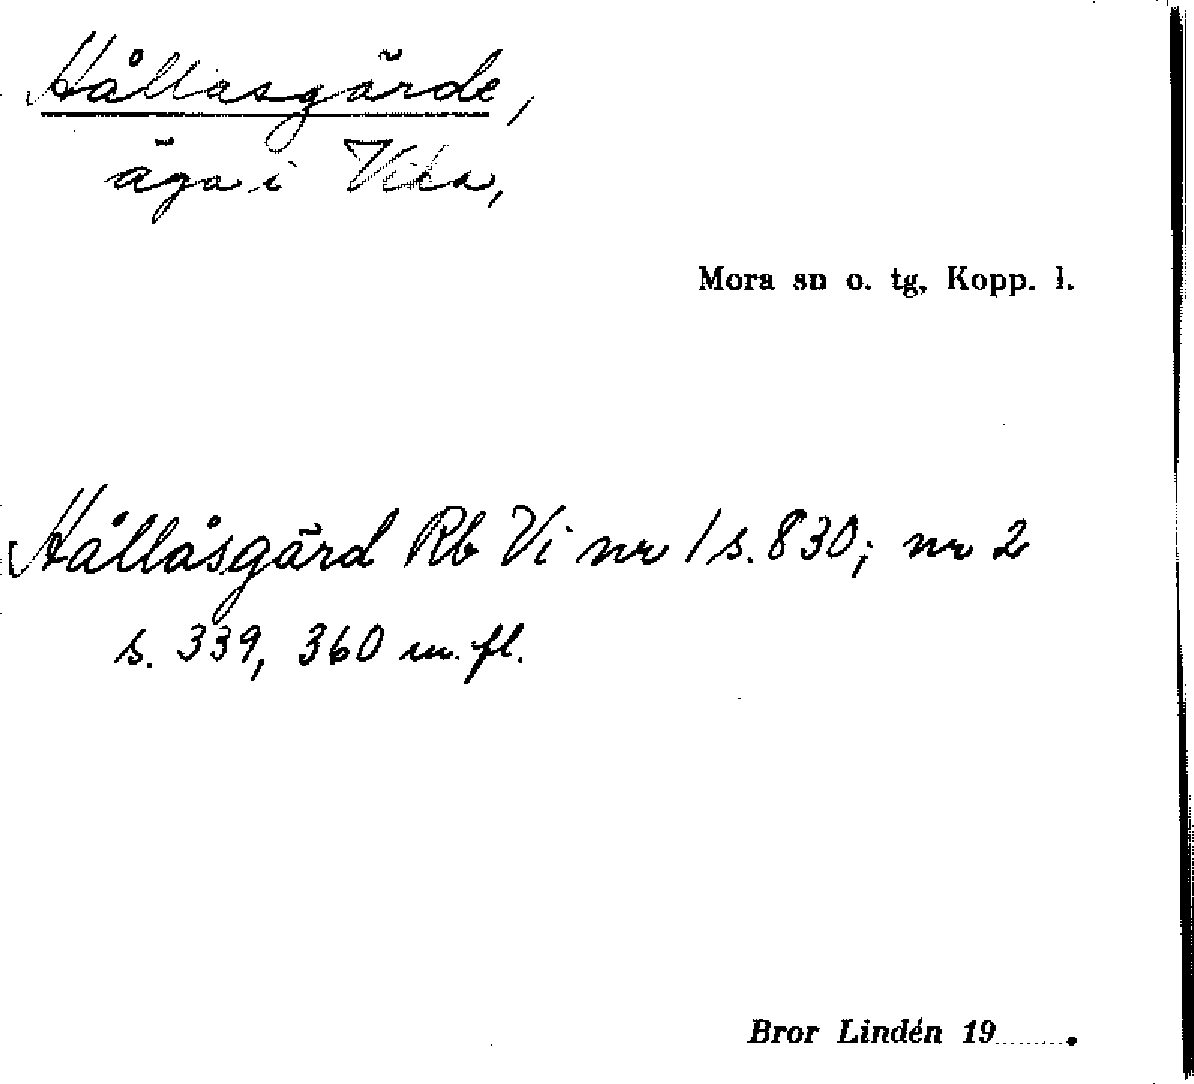 Hållasgärde,
äga i Vika,
Mora sn o. tg, Kopp. l.
Hållåsgärd Rb Vi nr 1 s. 830; nr 2
s. 339, 360 m. fl.
Bror Lindén 19........